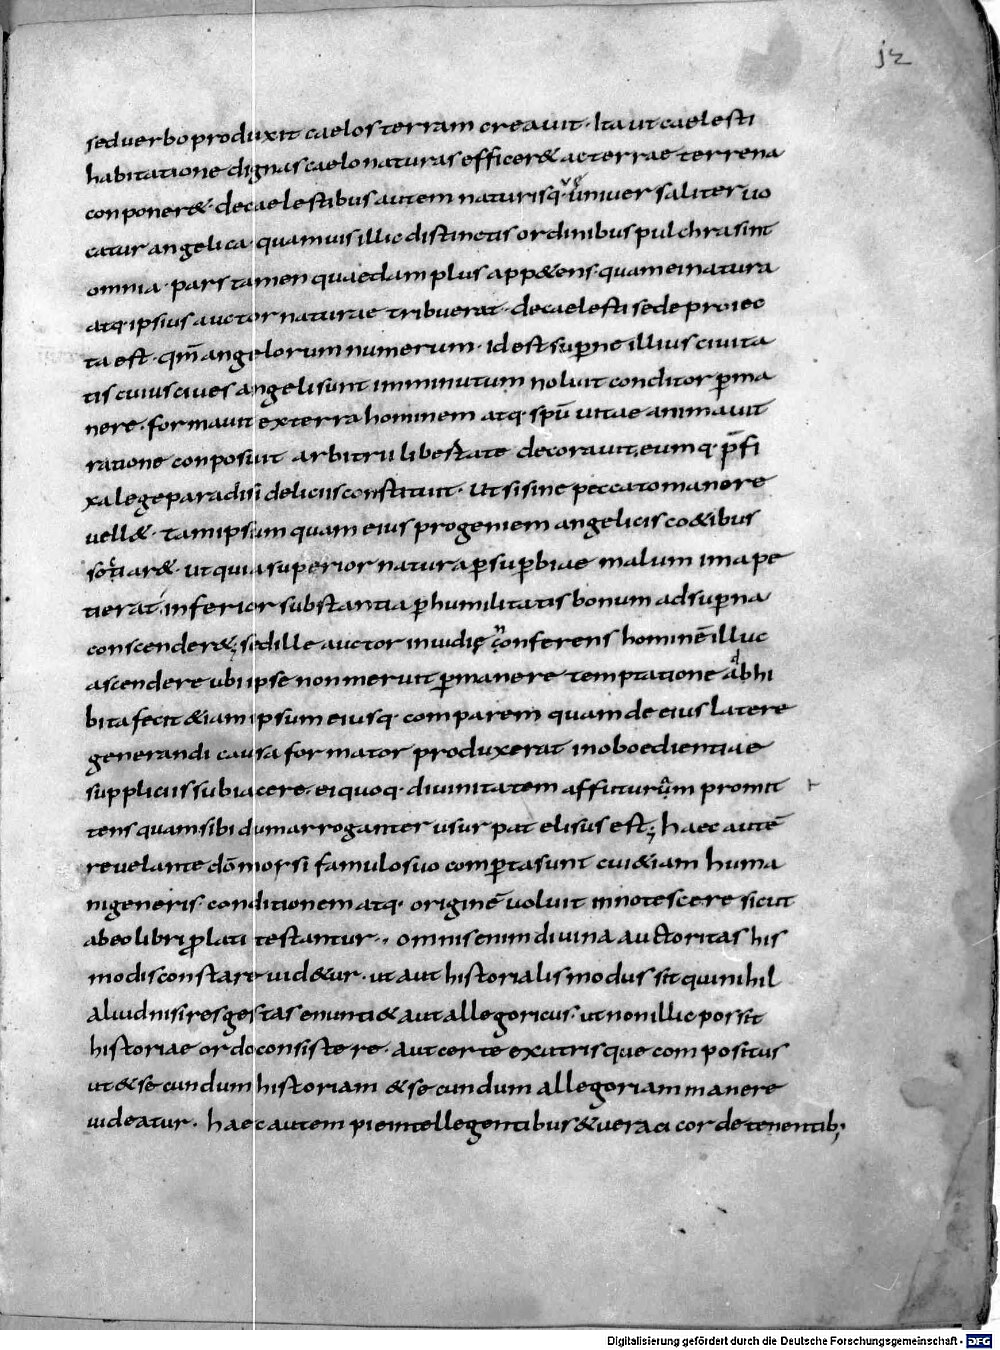 12
sed verbo produxit caelos terram creauit · Ita ut caelesti
habitatione dignas caelo naturas efficer& ac terrae terrena
conponer& · de caelestibus autem naturis q· uniuersaliter uo
catur angelica · quamuis illic distinctis ordinibus pulchra sint
omnia · pars tamen quaedam plus app&ens · quam ei natura
atq· ipsius auctor naturae tribuerat · de caelesti sede proiec
ta est · qm̄ angelorum numerum · id est sup̄ne illius ciuita
tis cuius ciues angeli sunt imminutum noluit conditor p̄ma
nere · formauit ex terra hominem atq· spū uitae animauit
ratione conposuit arbitrii libertate decorauit, eumq· p̄fi
xa lege paradisi deliciis constituit · Ut si sine peccato manere
uell& · tam ipsum quam eius progeniem angelicis co&ibus
sotiar& · ut quia superior natura p̄ sup̄biae malum ima pe
tierat, inferior substantia p̄ humilitatis bonum ad sup̄na
conscender&; sed ille auctor inuidię ñ conferens hominē illuc
ascendere ubi ipse non meruit p̄manere temptatione adhi
bita fecit &iam ipsum eiusq· comparem quam de eius latere
generandi causa formator produxerat inoboedientiae
suppliciis subiacere. ei quoq· diuinitatem affuturam promit
tens quam sibi dum arroganter usurpat elisus est; haec autē
reuelante dō morsi famulo suo comp̄ta sunt cui &iam huma
ni generis · conditionem atq· originē uoluit innotescere sicut
ab eo libri p̄lati testantur ·, omnis enim diuina auctoritas his
modis constare uid&ur · ut aut historialis modus sit qui nihil
aliud nisi res gestas enunti& aut allegoricus · ut non illic possit
historiae ordo consistere · aut certe ex utrisque compositus
ut & secundum historiam & secundum allegoriam manere
uideatur · haec autem pie intellegentibus & ueraci corde tenentib;
Digitalisierung gefördert durch die Deutsche Forschungsgemeinschaft - DFG